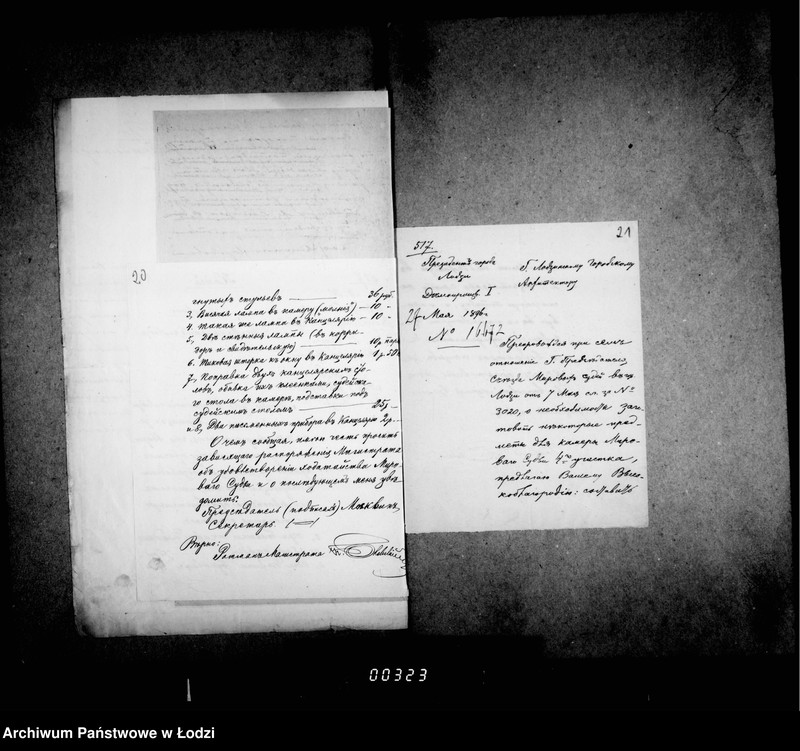 20
гнутыхъ стульевъ — 36 руб.
3, Висячая лампа въ камеру („молнія“) — 10 –
4, такая же лампа въ Канцелярію — 10 –
5, Двѣ стѣнныя лампы (въ корри-
доръ и свидѣтельскую) — 10, пара
6. Тиковая шторка къ окну въ Канцелярію 1 р. 50 к.
7, Поправка двухъ канцелярскихъ сто-
ловъ, обивка ихъ клеенкою, судейска-
го стола въ камеръ, подставки подъ
судейскимъ столомъ — 25 р. –
и 8, Два письменныхъ прибора въ Канцелярію 2 р. –
О чемъ сообщая, имѣю честь просить
зависящаго распоряженія Магистрата
объ удовлетвореніи ходатайства Миро-
ваго Судьи и о послѣдующемъ меня увѣ-
домить.
Предсѣдатель (подписалъ) Москвинъ,
Секретарь
Вѣрно:
Ратманъ Магистрата
21
517.
Президентъ города
Лодзи
Г. Лодзинскому Городскому
Архитектору
I
24 Мая 1896 г.
№ 16472
Препровождая при семъ
отношеніе Г. Предсѣдателя
Съѣзда Мировыхъ Судей въ г.
Лодзи отъ 7 Мая с. г. за №
3020, о необходимости заго-
товить нѣкоторые пред-
меты для камеры Миро-
ваго Судьи 4го участка,
предлагаю Вашему Высо-
коблагородію: составить
00323
Archiwum Państwowe w Łodzi